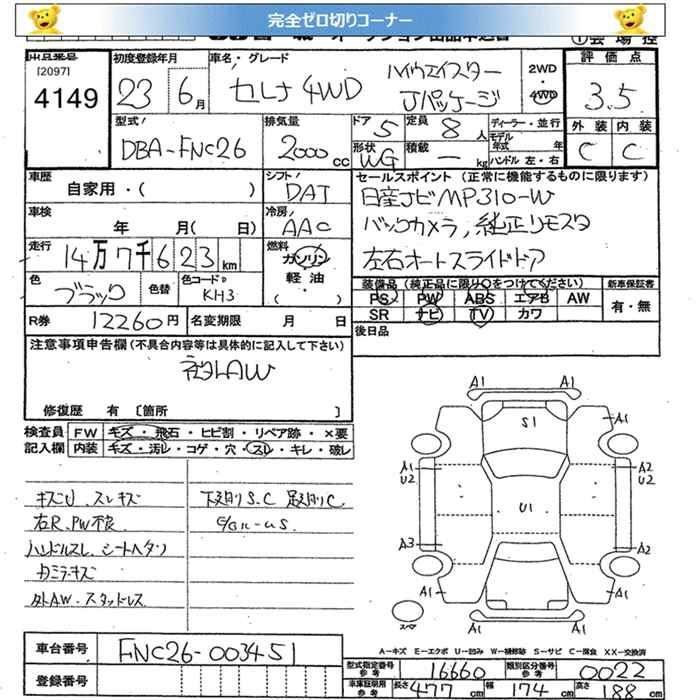 完全ゼロ切りコーナー
[2097]
4149
初度登録年月
23年 6月
車名・グレード
セレナ 4WD ハイウェイスター
Jパッケージ
2WD
・
4WD
評価点
3.5
型式
DBA-FNC26
排気量
2000cc
ドア 5
定員 8人
形状 WG
積載 ー kg
ディーラー・並行
モデル年式 年
ハンドル 左・右
外装 内装
C C
車歴
自家用・( )
シフト
DAT
セールスポイント (正常に機能するものに限ります)
日産ナビMP310-W
バックカメラ, 純正リモスタ
左右オートスライドドア
車検
年 月( 日)
冷房
AAC
走行 14万7千623km
燃料
ガソリン
軽油
・( )
色 ブラック
色替
色コード
KH3
装備品 (純正品に限り○をつけてください)
新車保証書
PS PW ABS エアB AW
SR ナビ TV カワ
有・無
R券 12260円
名変期限 月 日
後日品
注意事項申告欄 (不具合内容等は具体的に記入して下さい)
社外AW
修復歴 有 [箇所 ]
検査員
記入欄
FW キズ・飛石・ヒビ割・リペア跡・×要
内装 キズ・汚レ・コゲ・穴・スレ・キレ・破レ
キズU スレキズ
右R.PW不良
ハンドルスレ シートヘタリ
カミラキズ
外AW.スタッドレス
下廻りS.C 足廻りC
A1 A1
A1 S1 A1
A1 U2
A2 U2
U1
A3 A2
A1 A1
A1 A1
スペア
A-キズ E-エクボ U-凹み W-補修跡 S-サビ C-腐食 XX-交換済
車台番号 FNC26-003451
登録番号
型式指定番号 参考 16660
類別区分番号 参考 0022
車庫証明用 参考 長さ 477 幅 174 高さ 188 cm